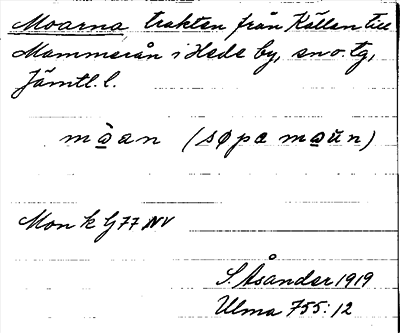 Moarna, trakten från Källan till
Mammerån i Hede by, sn o. tg,
Jämtl. l.
màan (søpa maŭn)
Mon k G 77 NV
S. Åsander 1919
Ulma 755:12